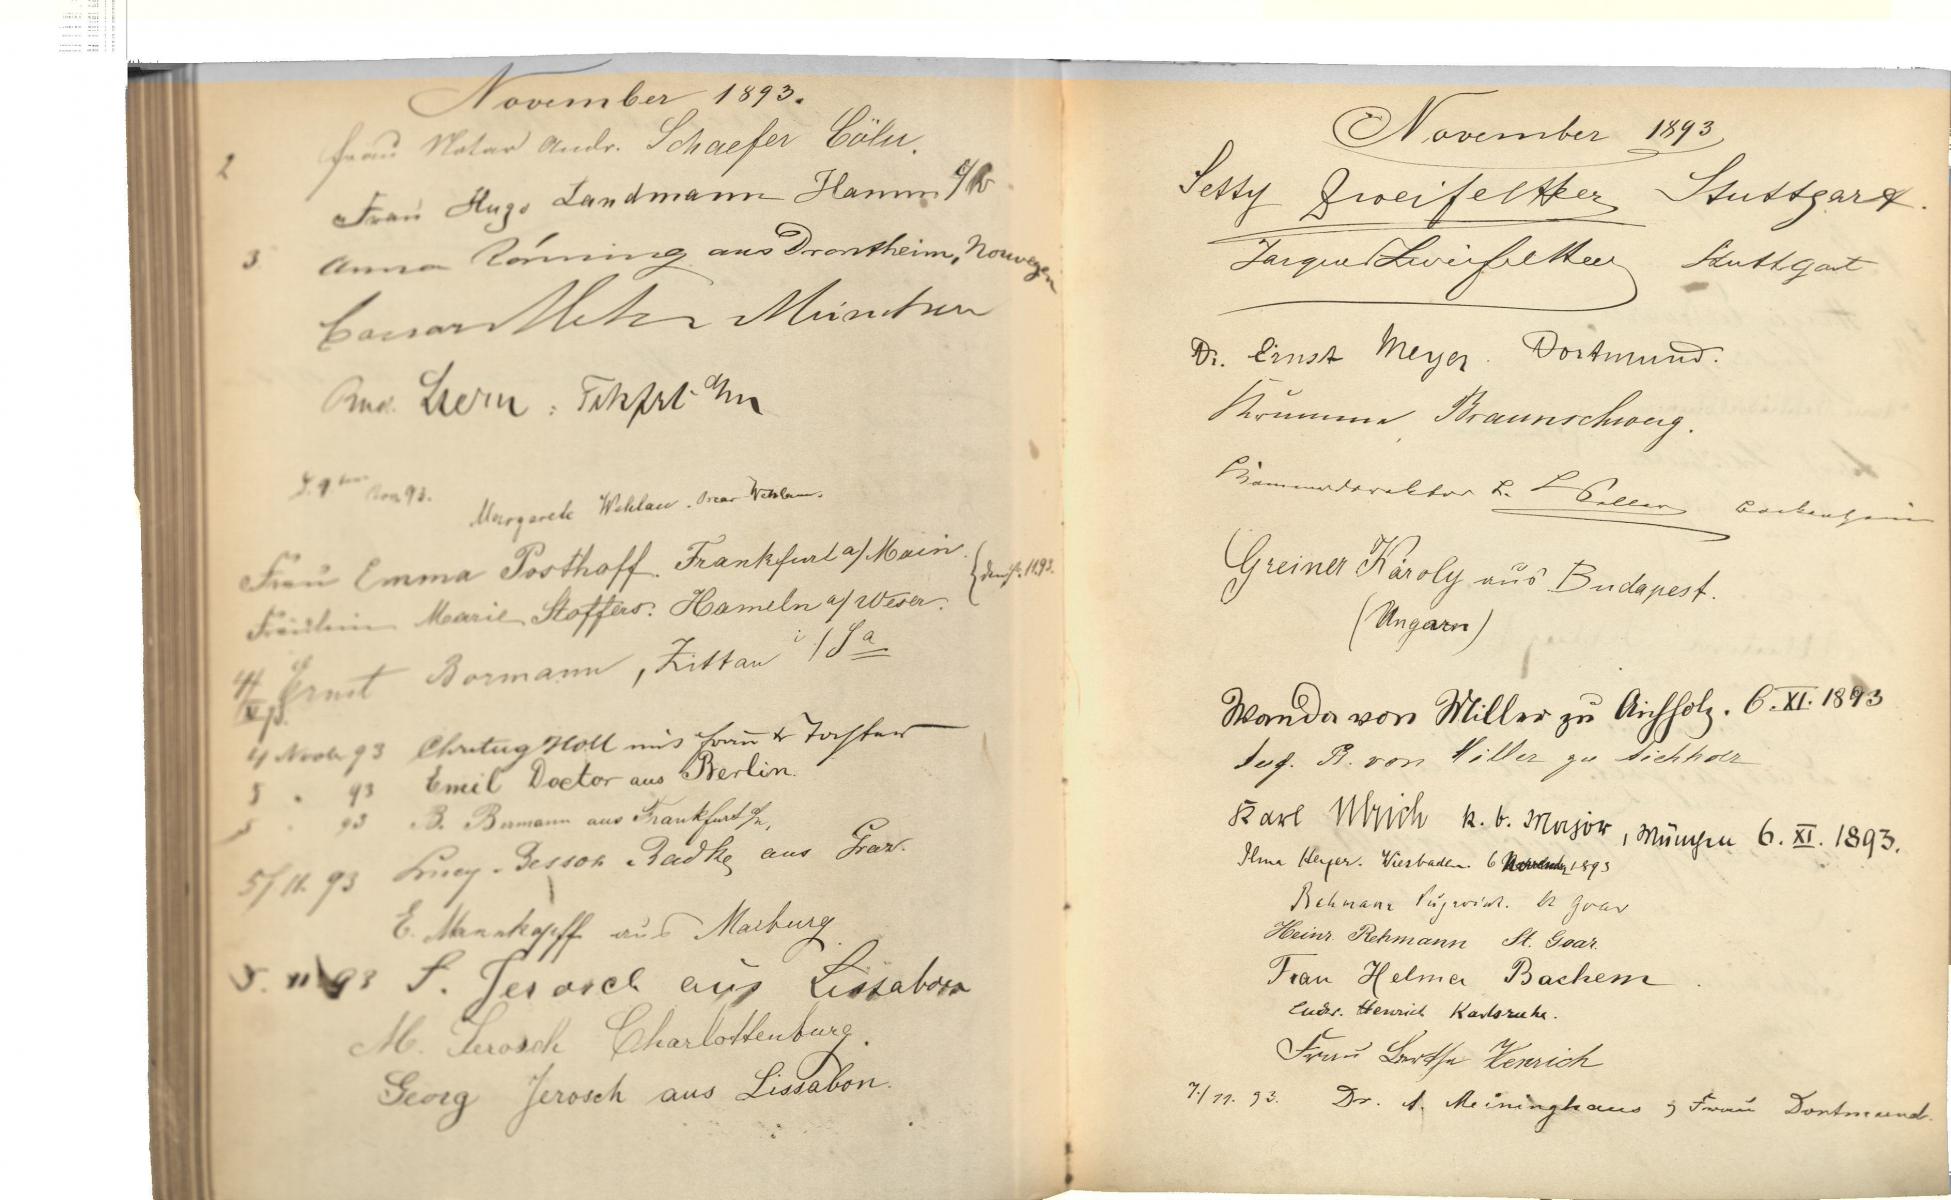 November 1893.
2 Frau Notar Andr. Schaefer Cöln.
Frau Hugo Landmann Hamm
3 Anna Rönning aus Drontheim, Norwegen
München
Stern
Nov 93. Margarete Wehlau. Oscar Wehlau.
Frau Emma Posthoff. Frankfurt a/Main
Fräulein Marie Stoffers. Hameln a/Weser.
Ernst Bormann, Zittau i/Sa
4 93 Holl mit Frau
5 " 93 Emil Doctor aus Berlin.
5 " 93 B. Bormann aus Frankfurt
5/11. 93 Lucy Radke aus Graz.
E. aus Marburg
5. 11. 93 S. Jerosch aus Lissabon
M. Jerosch Charlottenburg.
Georg Jerosch aus Lissabon.
November 1893
Setty Zweifel Stuttgart.
Stuttgart
Dr. Ernst Meyer. Dortmund.
Krumme, Braunschweig.
Greiner Károly aus Budapest.
(Ungarn)
Wanda von Miller zu Aichholz. 6. XI. 1893
R. von Miller zu Aichholz
Karl Ulrich k. b. Major, München 6. XI. 1893.
Ilma Heyer. Wiesbaden. 6 November 1893
Rehmann St Goar
Heinr. Rehmann St. Goar.
Frau Helma Bachem
Henrich Karlsruhe.
Frau Bertha Henrich
7./11. 93. Dr. A. Meininghaus & Frau Dortmund.